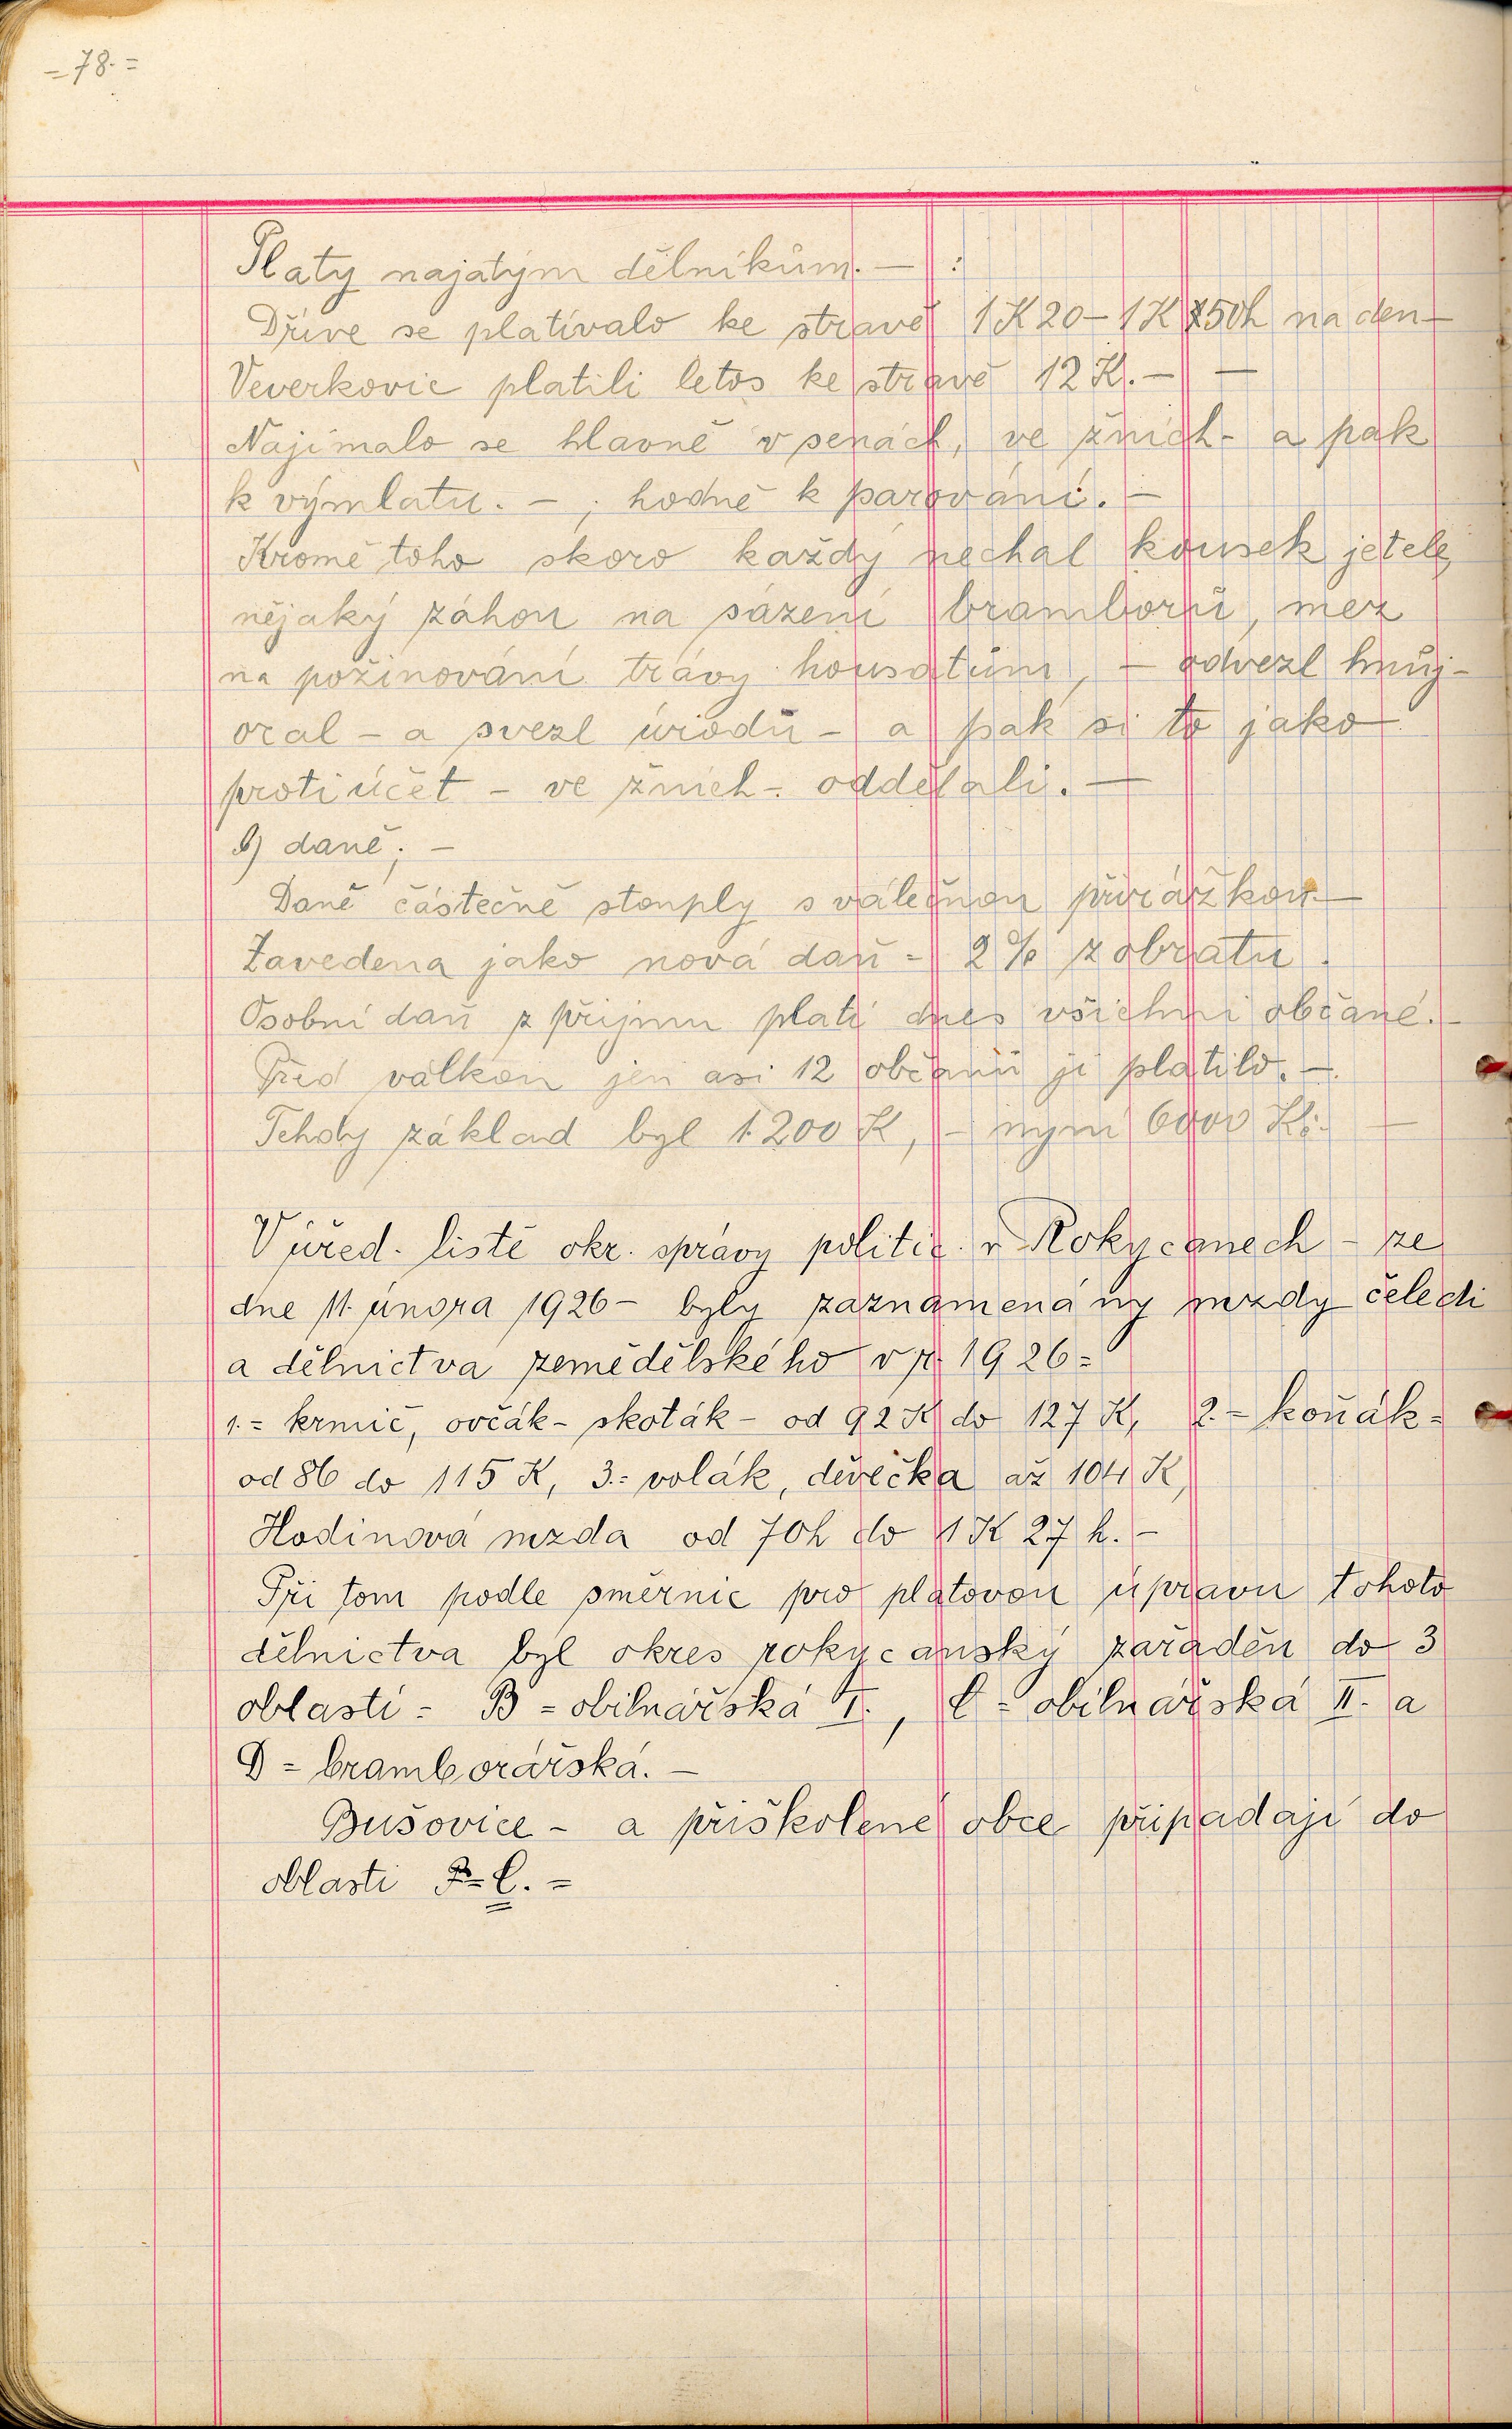 = 78. =
Platy najatým dělníkům. — :
Dříve se platívalo ke stravě 1 K 20 – 1 K 50 h na den –
Veverkovic platili letos ke stravě 12 K. — —
Najímalo se hlavně v senách, ve žních - a pak
k výmlatu. – ; hodně k parování. –
Kromě toho skoro každý nechal kousek jetele,
nějaký záhon na sázení bramborů, mez
na požínování trávy housatům, – odvezl hnůj –
oral – a svezl úrodu – a pak si to jako
protiúčet – ve žních – oddělali. —
b) daně; –
Daně částečně stouply s válečnou přirážkou —
Zavedena jako nová daň = 2 % z obratu.
Osobní daň z příjmu platí dnes všichni občané. –
Před válkou jen asi 12 občanů ji platilo. –.
Tehdy základ byl 1.200 K, – nyní 6000 Kč. —
V úřed. listě okr. správy politic. v Rokycanech – ze
dne 11. února 1926 – byly zaznamenány mzdy čeledi
a dělnictva zemědělského v r. 1926 =
1. = krmič, ovčák – skoták – od 92 K do 127 K, 2. = koňák =
od 86 do 115 K, 3. = volák, děvečka až 104 K,
Hodinová mzda od 70 h do 1 K 27 h. –
Při tom podle směrnic pro platovou úpravu tohoto
dělnictva byl okres rokycanský zařaděn do 3
oblastí = B = obilnářská I., C = obilnářská II. a
D = bramborářská. –
Bušovice – a přiškolené obce připadají do
oblasti C. =